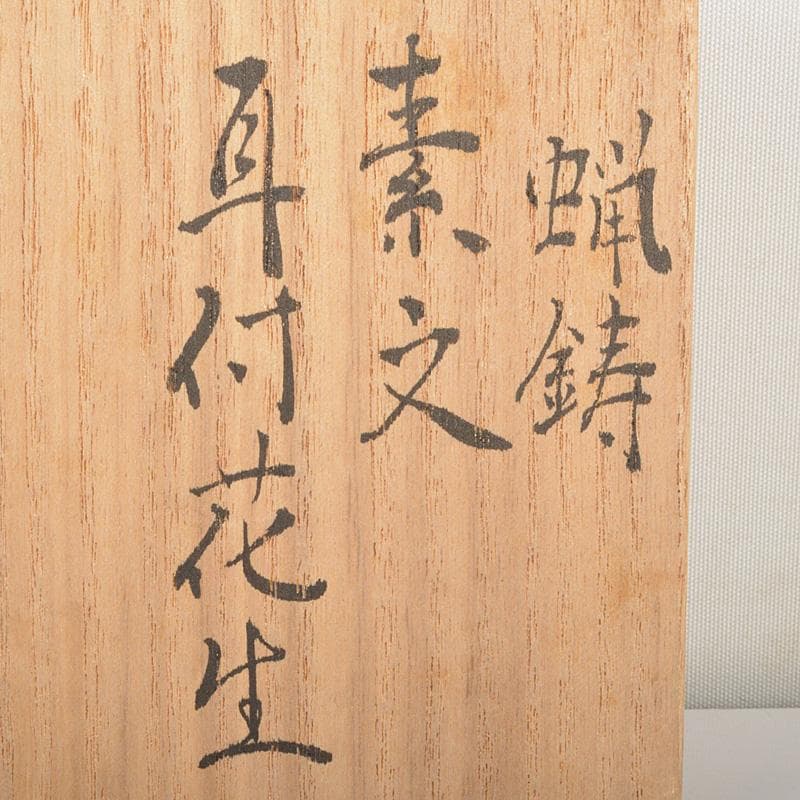 蝋鋳
素文
耳付花生